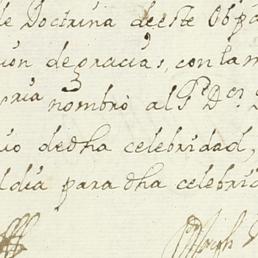 de Doctrina deeste Obpa
ion de gracias, con la m
ria nombrò al P.e D.n
uo dedha celebridad,
l dia para dha celebrid